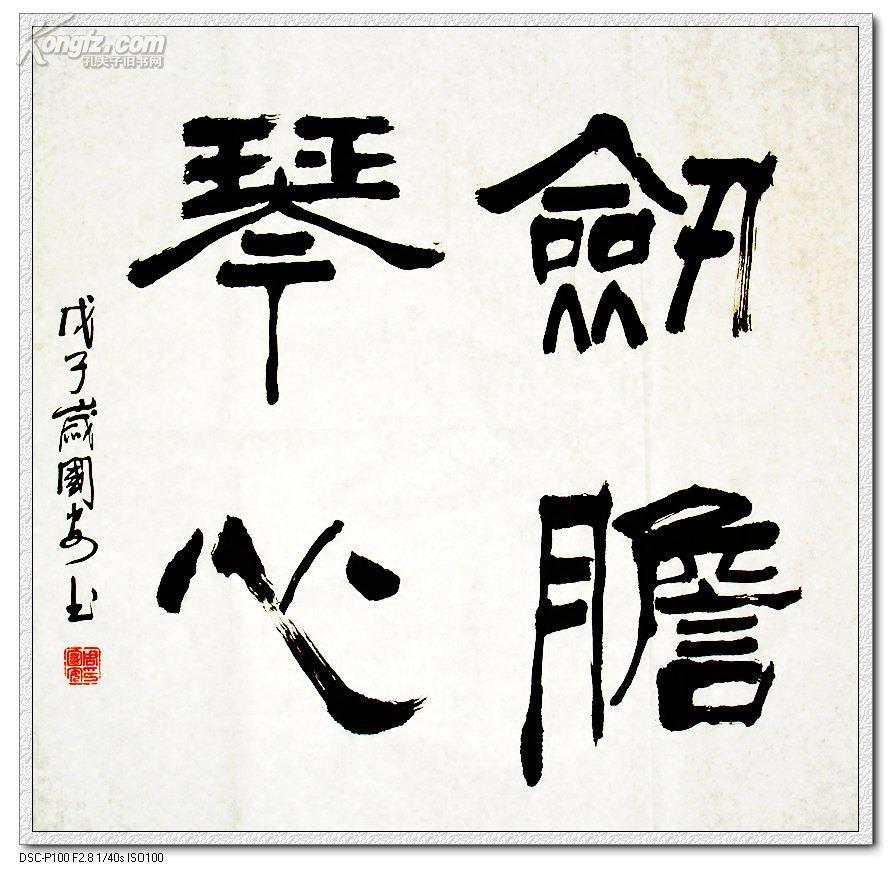 Kongfz.com
孔夫子旧书网
劒膽
琴心
戊子歲國安书
DSC-P100 F2.8 1/40s ISO100